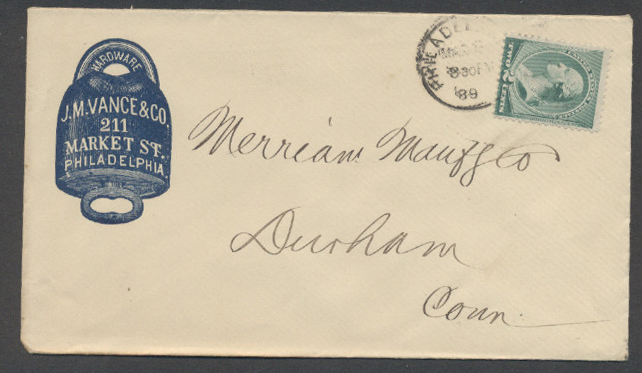 HARDWARE
J.M. VANCE & CO.
211
MARKET ST.
PHILADELPHIA
PHILADEL
MAR
8 30 P
89
TWO 2 CENTS
Merriam Manfg Co
Durham
Conn.